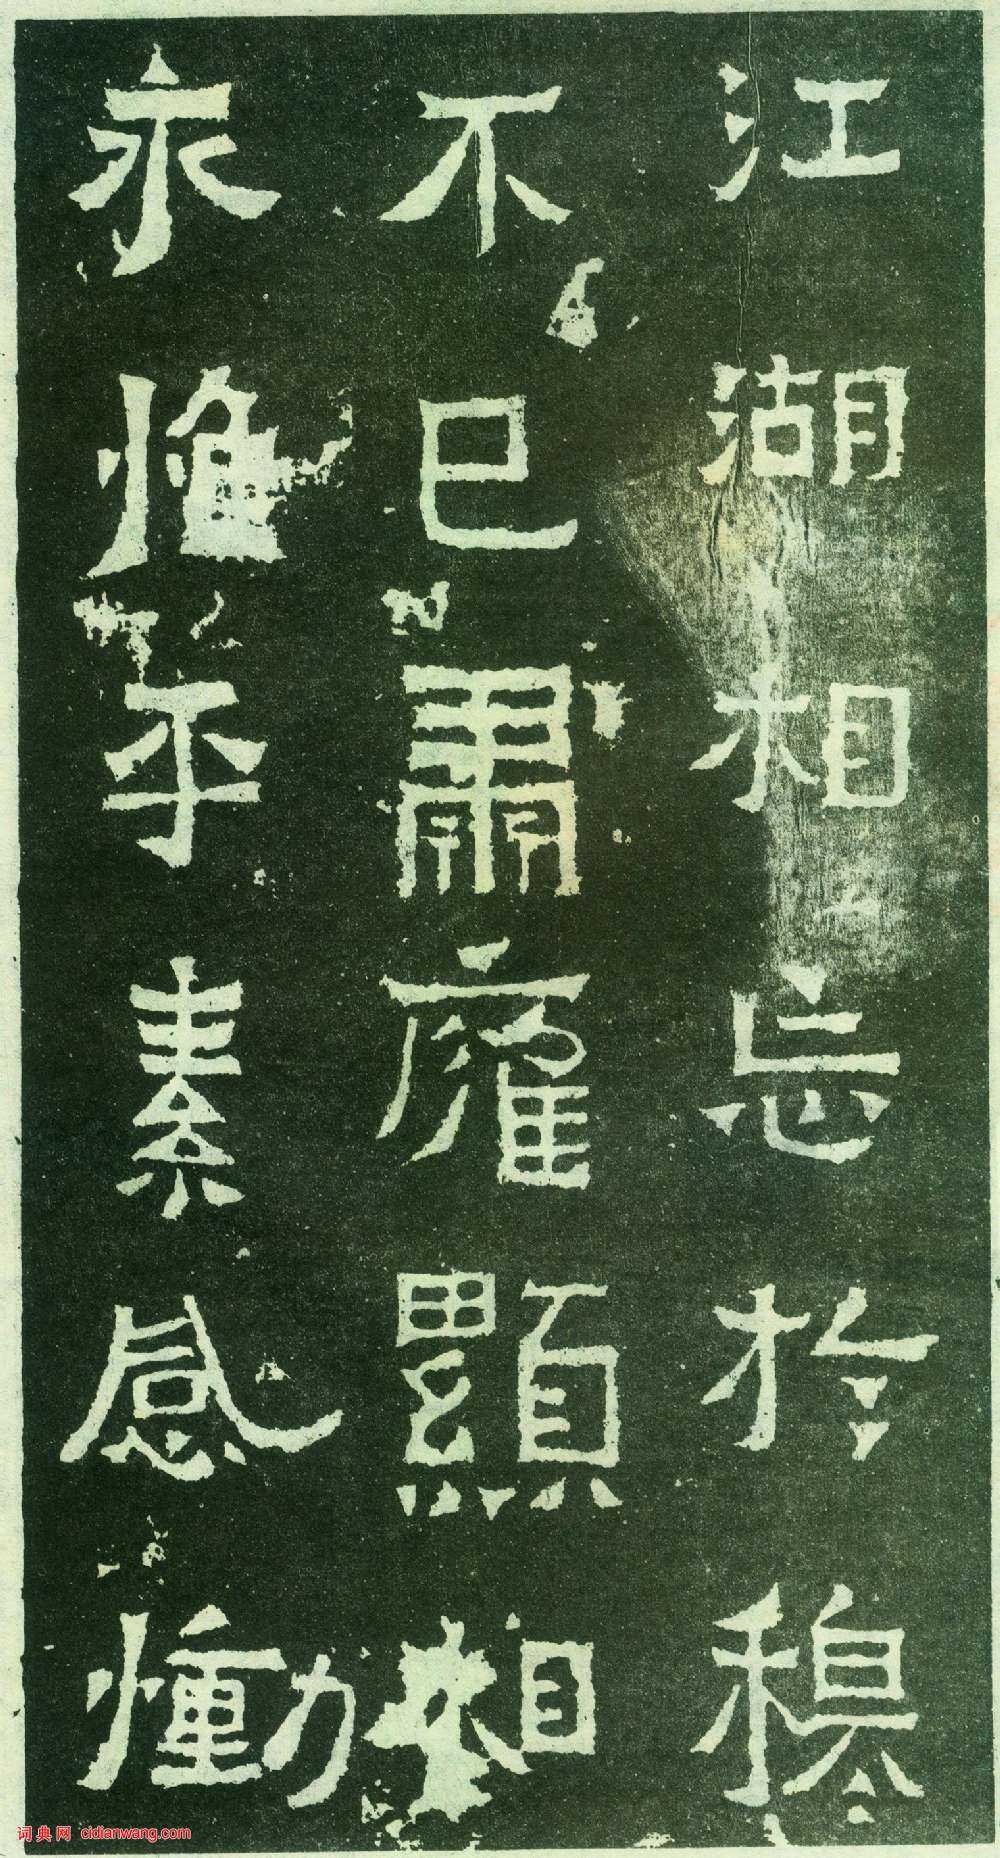 江湖相忘於穆
不已肅雍顯相
永惟平素感慟
词典网 cidianwang.com